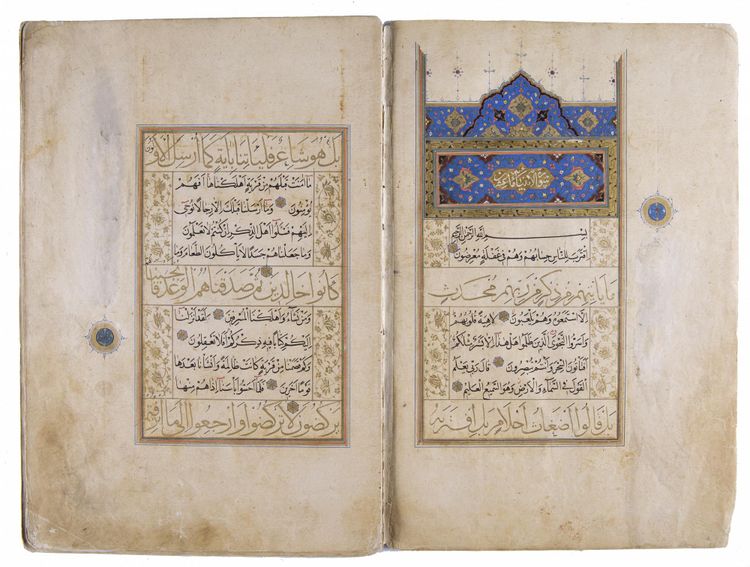 سورة الانبياء
بسم الله الرحمن الرحيم
اقترب للناس حسابهم وهم في غفلة معرضون
ما يأتيهم من ذكر من ربهم محدث
الا استمعوه وهم يلعبون لاهية قلوبهم
واسروا النجوى الذين ظلموا هل هذا الا بشر مثلكم
افتأتون السحر وانتم تبصرون قال ربي يعلم
القول في السماء والارض وهو السميع العليم
بل قالوا اضغاث احلام بل افتريه
بل هو شاعر فليأتنا بآية كما ارسل الاولون
ما امنت قبلهم من قرية اهلكناها افهم
يؤمنون وما ارسلنا قبلك الا رجالا نوحي
اليهم فسئلوا اهل الذكر ان كنتم لا تعلمون
وما جعلناهم جسدا لا يأكلون الطعام وما
كانوا خالدين ثم صدقناهم الوعد فانجيناهم
ومن نشاء واهلكنا المسرفين لقد انزلنا
اليكم كتابا فيه ذكركم افلا تعقلون
وكم قصمنا من قرية كانت ظالمة وانشأنا بعدها
قوما اخرين فلما احسوا بأسنا اذا هم منها
يركضون لا تركضوا وارجعوا الى ما اترفتم